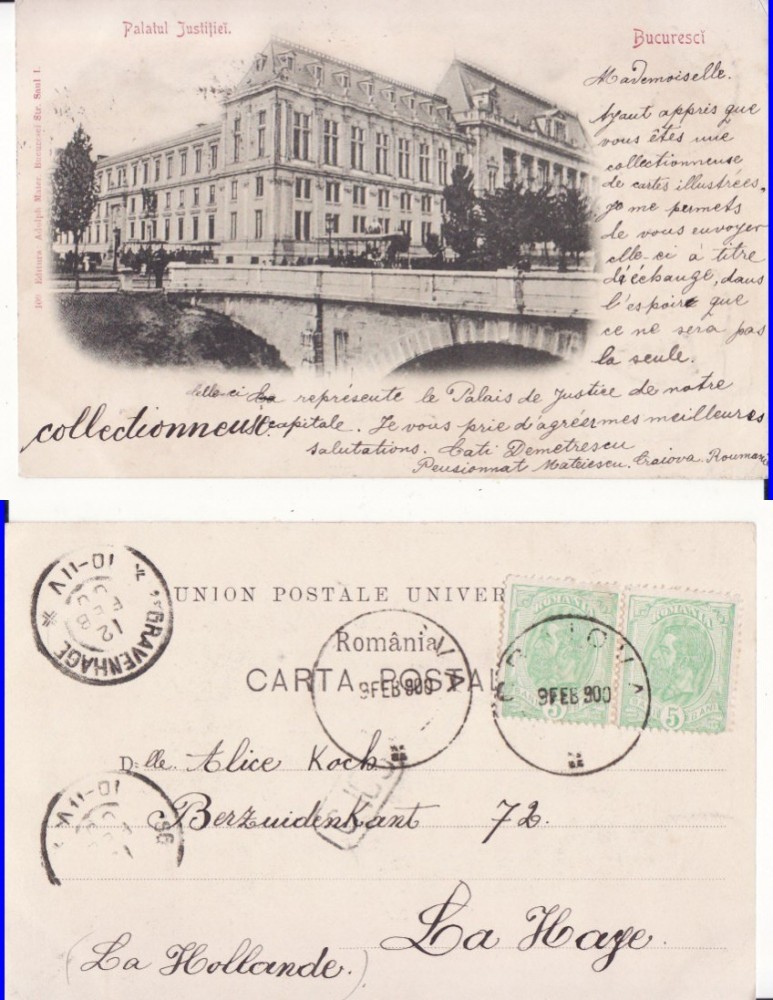 Palatul Justiţiei.
Bucuresci
Editura Adolph Maier Bucuresci Str. Smi 1.
Mademoiselle.
Ayant appris que
vous êtes une
collectionneuse
de cartes illustrées,
je me permets
de vous envoyer
celle-ci à titre
d'échange, dans
l'espoire que
ce ne sera pas
la seule.
Celle-ci représente le Palais de Justice de notre
capitale. Je vous prie d'agréer mes meilleures
collectionneuse.
salutations. Cati Demetrescu
Pensionnat Mateiescu. Craiova. Roumanie
UNION POSTALE UNIVER
România
CARTA POSTAL
's GRAVENHAGE
12 FEB
10-11V
9 FEB 900
CRAIOVA
9 FEB 900
ROMANIA
5 BANI
ROMANIA
5 BANI
D-lle. Alice Koch
Berzuidenkant 72.
10-11V
La Haye.
(La Hollande.)